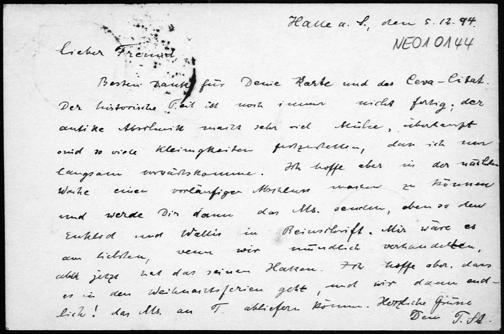 Halle a. S., den 5.12.94.
NE010144
Lieber Freund
Besten Dank für Deine Karte und das Ceva-Citat.
Der historische Teil ist noch immer nicht fertig; der
antike Abschnitt macht sehr viel Mühe, überhaupt
sind so viele Kleinigkeiten festzustellen, dass ich nur
langsam vorwärtskomme. Ich hoffe aber in der nächsten
Woche einen vorläufigen Abschluss machen zu können
und werde Dir dann das Ms. senden, eben so den
Euklid und Wallis in Reinschrift. Mir wäre es
am liebsten, wenn wir mündlich verhandelten,
aber jetzt hat das seinen Haken. Ich hoffe aber, dass
es in den Weihnachtsferien geht, und wir dann end-
lich! das Ms. an T. abliefern können. Herzliche Grüsse
Dein T. St.